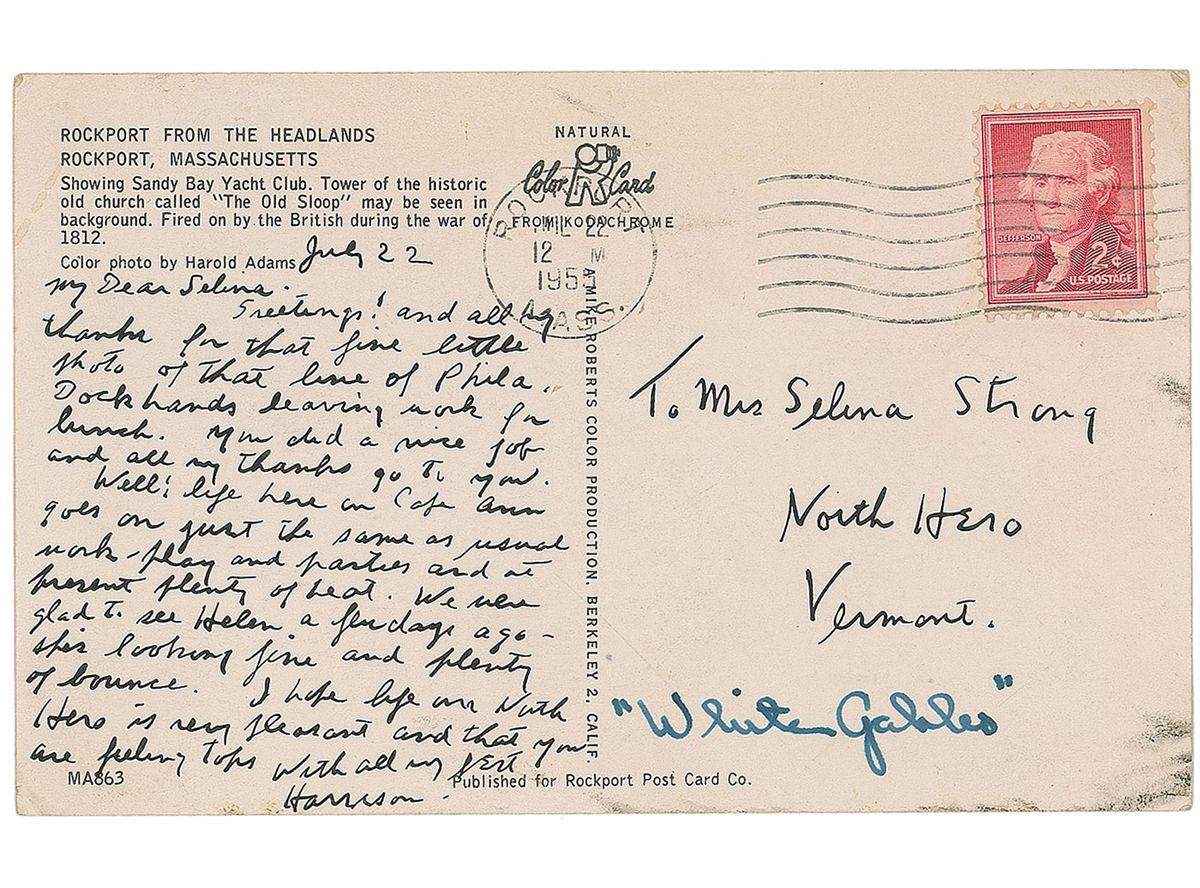 ROCKPORT FROM THE HEADLANDS
ROCKPORT, MASSACHUSETTS
Showing Sandy Bay Yacht Club. Tower of the historic
old church called "The Old Sloop" may be seen in
background. Fired on by the British during the war of
1812.
Color photo by Harold Adams
July 22
My Dear Selina.
Greetings! and all my
thanks for that fine little
photo of that line of Phila.
Dockhands leaving work for
lunch. You did a nice job
and all my thanks go to you.
Well; life here on Cape Ann
goes on just the same as usual
work-play and parties and at
present plenty of heat. We were
glad to see Helen a few days ago-
she's looking fine and plenty
of bounce. I hope life on North
Hero is very pleasant and that you
are feeling tops With all my best
Harrison.
MA863
NATURAL
Color Card
FROM KODACHROME
ROCKPORT
JUL 22
12 M
1955
MASS.
MIKE ROBERTS COLOR PRODUCTION, BERKELEY 2, CALIF.
Published for Rockport Post Card Co.
JEFFERSON
2¢
U.S. POSTAGE
To Mrs Selina Strong
North Hero
Vermont.
"White Gables"